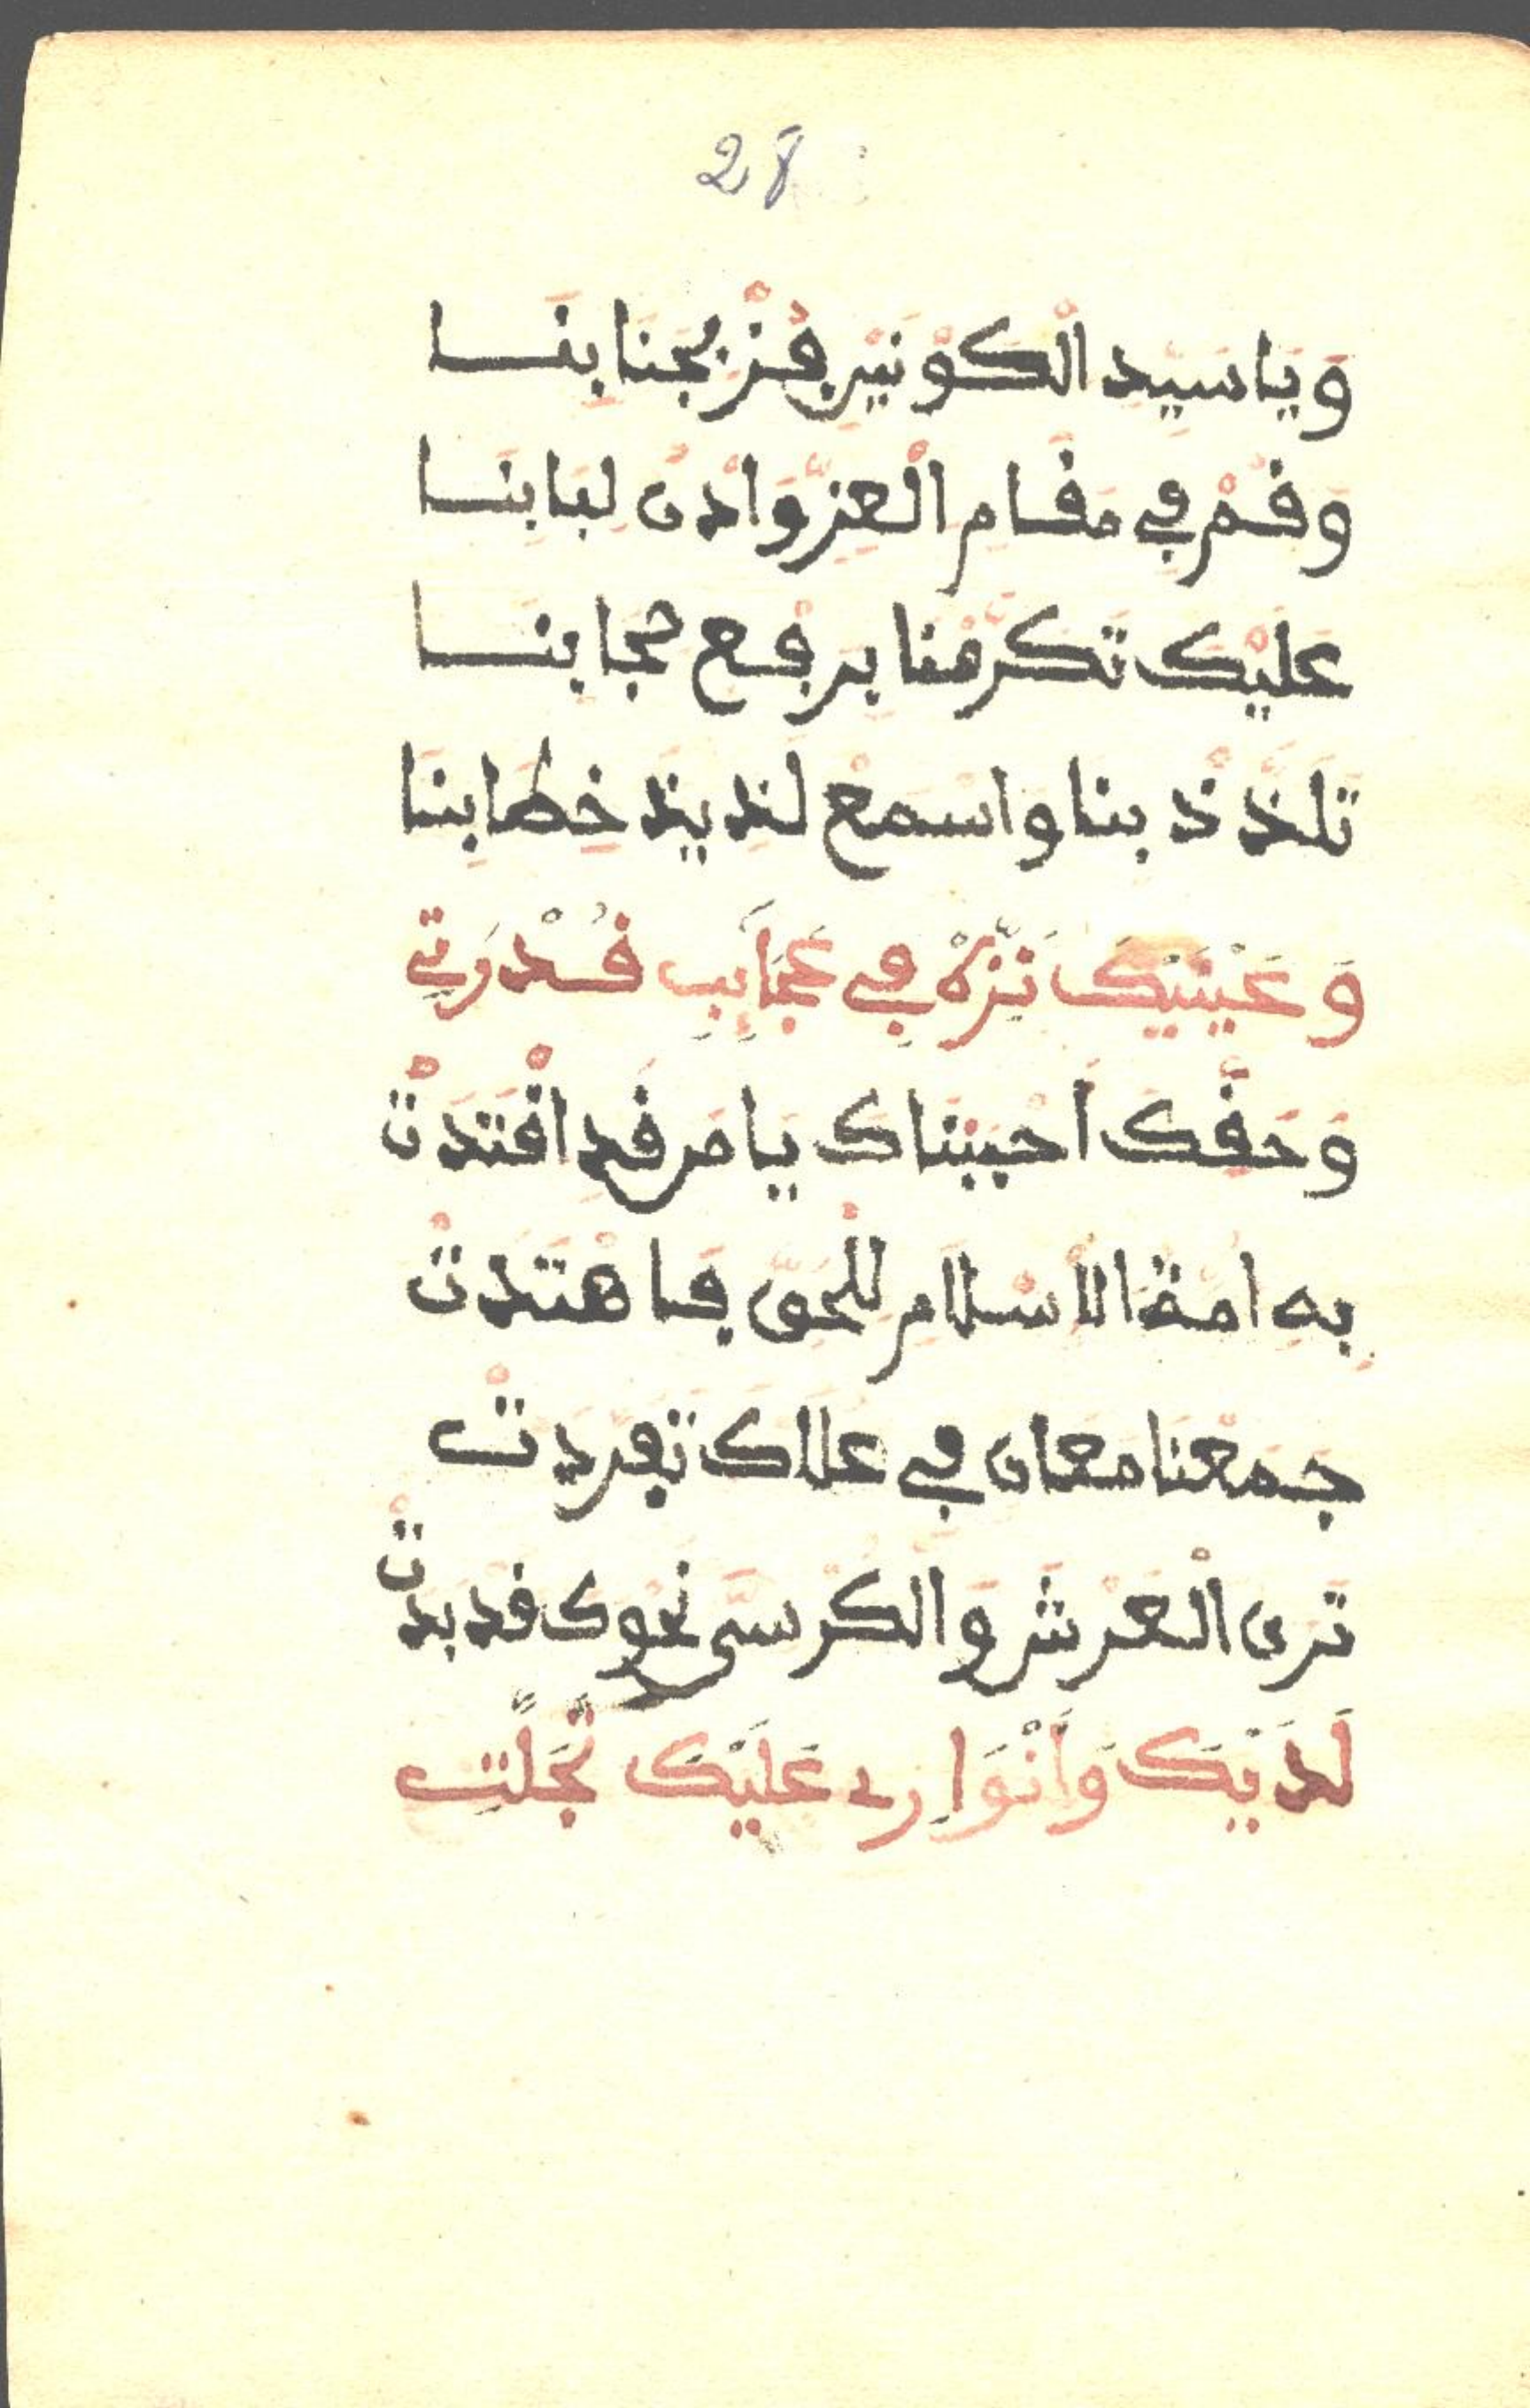 28
وَيَا سَيِّد الْكَوْنَيْنِ فُزْ بِجَنَابِنَا
وَقُمْ فِي مَقَامِ الْعِزِّ وَادْنُ لِبَابِنَا
عَلَيْكَ تَكَرَّمْنَا بِرَفْعِ حِجَابِنَا
تَلَذَّذْ بِنَا وَاسْمَعْ لَذِيذَ خِطَابِنَا
وَعَيْنَيْكَ نَزِّهْ فِي عَجَايِبِ قُدْرَتِي
وَحَقِّكَ أَحْبَبْنَاكَ يَا مَن قَدِ اقْتَدَتْ
بِهِ امَّةُ الاسْلَامِ لِلْحَقِّ فَاهْتَدَتْ
جَمَعْنَا مَعَان فِي عُلَاكَ تَفَرَّدَتْ
تَرَى الْعَرْشَ وَالْكُرْسِيَّ نَحْوَكَ قَد بَدَتْ
لَدَيْكَ وَأَنْوَارِي عَلَيْكَ تَجَلَّتِ